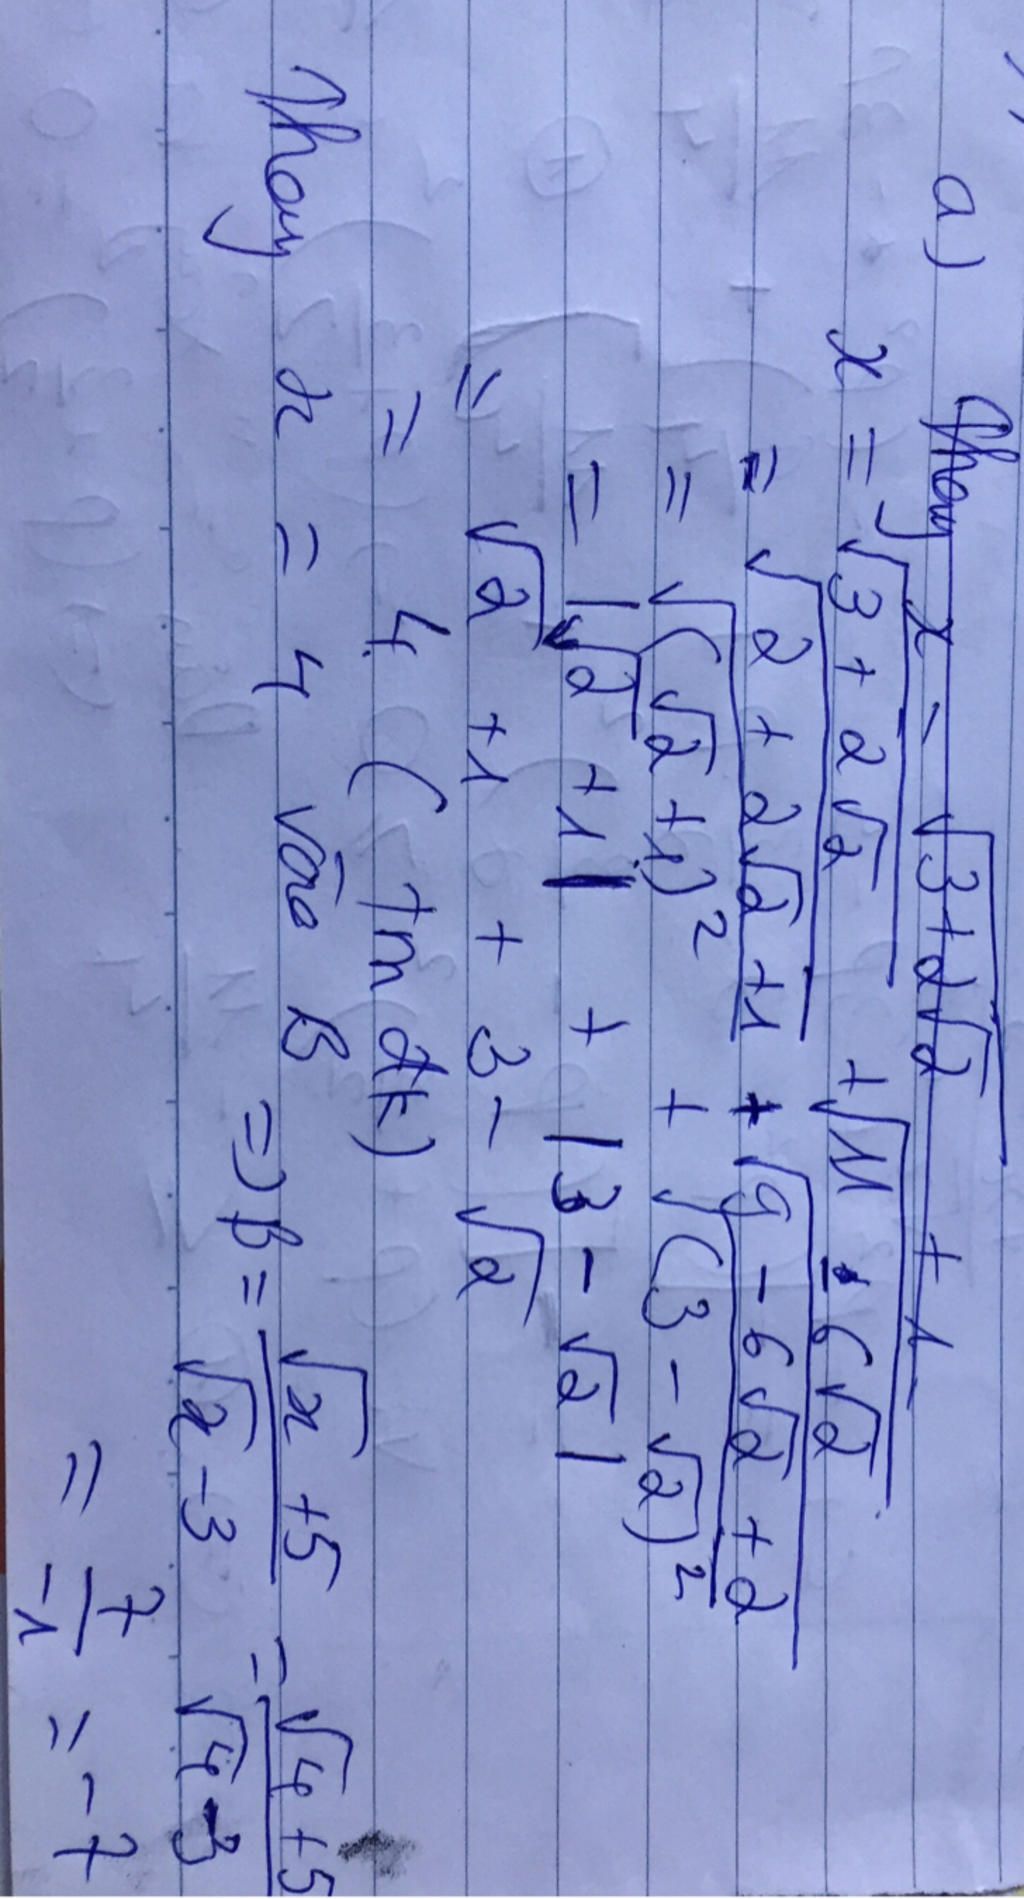 a) Thay x = √3+2√2 + 1
x = √3 + 2√2 + √11 - 6√2
= √2 + 2√2 + 1 + √9 - 6√2 + 2
= √(√2 + 1)² + √(3 - √2)²
= |√2 + 1| + |3 - √2|
= √2 + 1 + 3 - √2
= 4 (tm đk)
Thay x = 4 vào B => B = √x + 5 / √x - 3 = √4 + 5 / √4 - 3
= 7 / -1 = -7